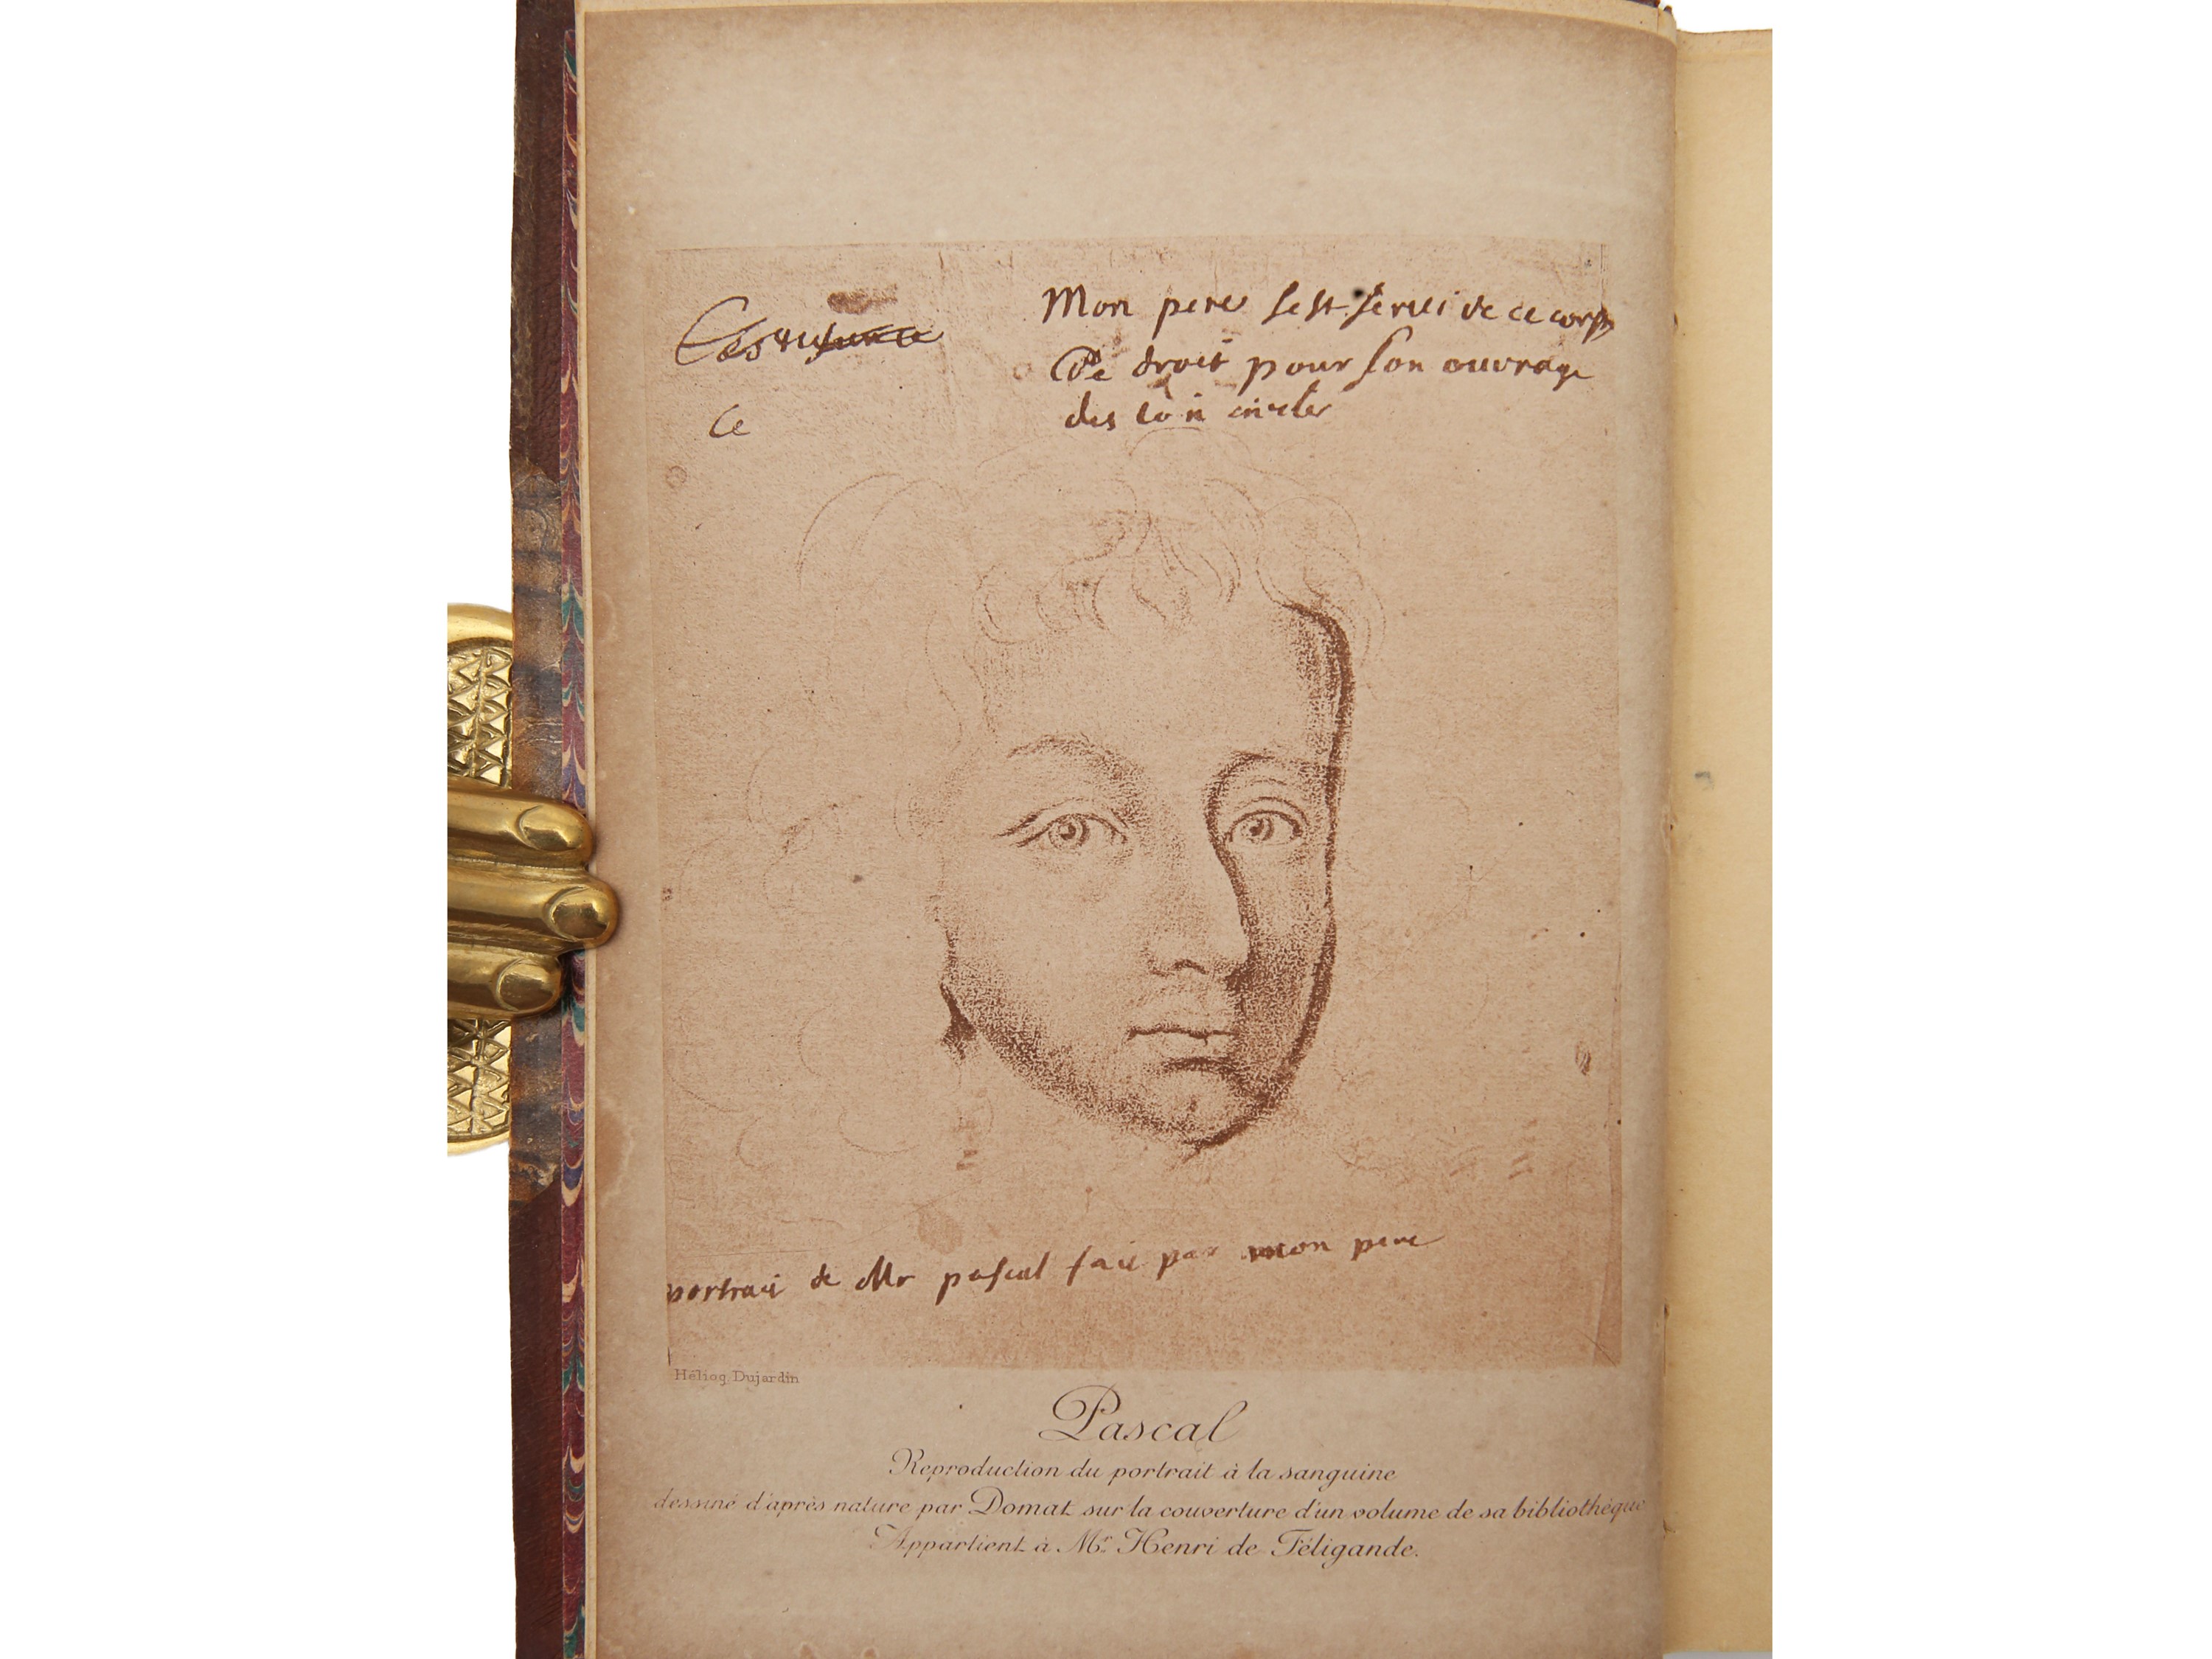 Mon pere sest servi de ce corps
De droit pour son ouvrage
Ce
des
portrait de Mr pascal fait par mon pere
Héliog. Dujardin
Pascal
Reproduction du portrait à la sanguine
dessiné d'après nature par Domat sur la couverture d'un volume de sa bibliothèque
Appartient à Mr. Henri de Féligande.